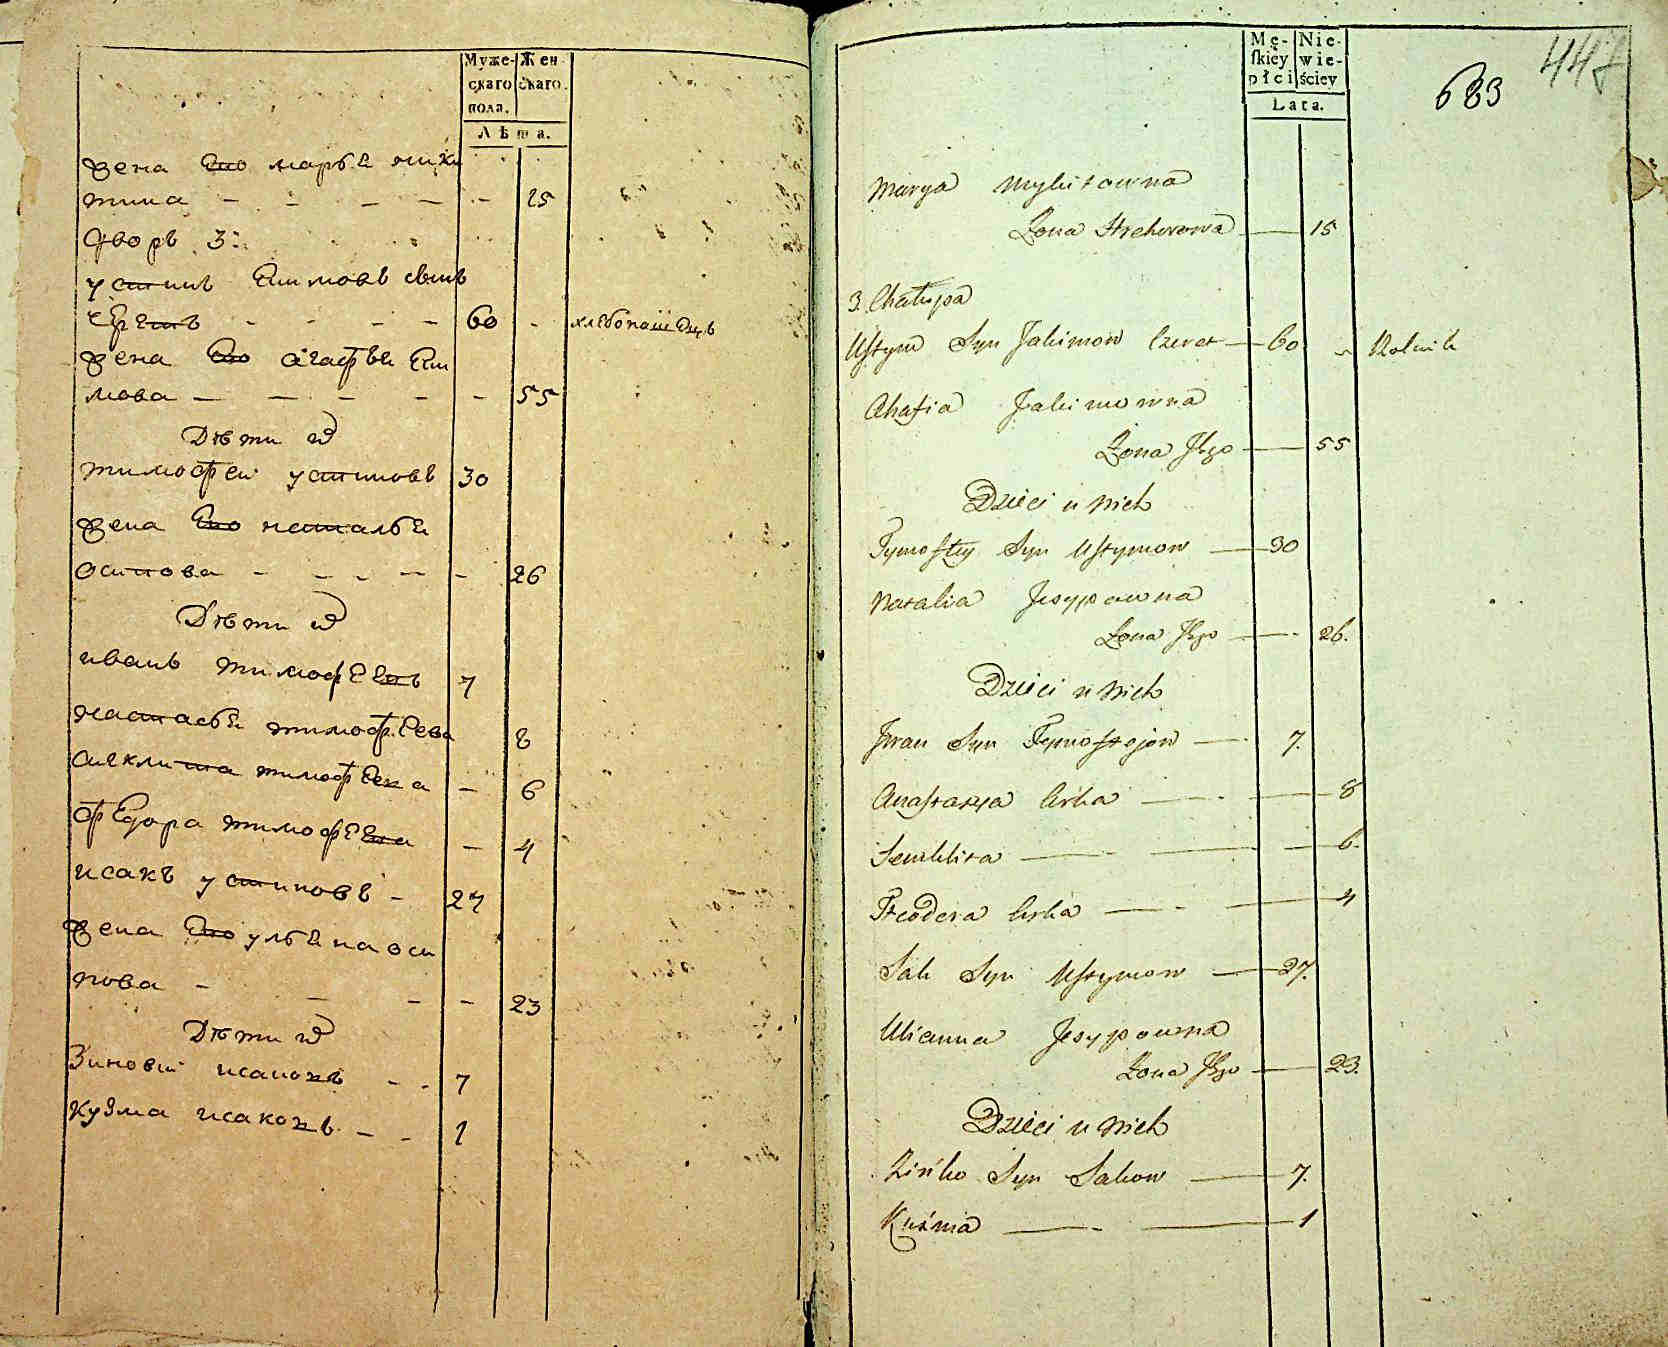 Муже-
скаго
пола.
Жен
скаго.
Лѣта.
жена Его марья ники
тина - - - - - 25
дворъ 3:
устинъ Екимовъ сынъ
черетъ - - - - 60 - хлебопашецъ
жена Его агафья Еки
мова - - - - - 55
Дѣти их
тимофеи устиновъ 30
жена Его наталья
осипова - - - - - 26
Дѣти их
иванъ тимофеевъ 7
настасья тимофеева 8
тимофеева - 6
федора тимофеева - 4
исакъ устиновъ - 27
жена Его ульяна оси
пова - - - - 23
Дѣти их
Зиновеи исаковъ - - 7
Кузма исаковъ - - 1
Mę-
skiey
płci
Nie-
wie-
ściey
Lata.
683
447
Marya Mykitowna
Żona Hrehorowa — 15
3. Chałupa
Ustym Syn Jakimow Czeret — 60 Rolnik
Ahafia Jakimowna
Żona Jego — 55
Dzieci u nich
Tymoftey Syn Ustymow — 30
Natalia Jesypowna
Żona Jego — 26.
Dzieci u nich
Jwan Syn Tymoftejow — 7.
Anastazya Córka — 8
Semklita — 6.
Fteodera Córka — 4
Sak Syn Ustymow — 27.
Ulianna Jesypowna
Żona Jego — 23.
Dzieci u nich
Zińko Syn Sakow — 7.
Kuźma — 1